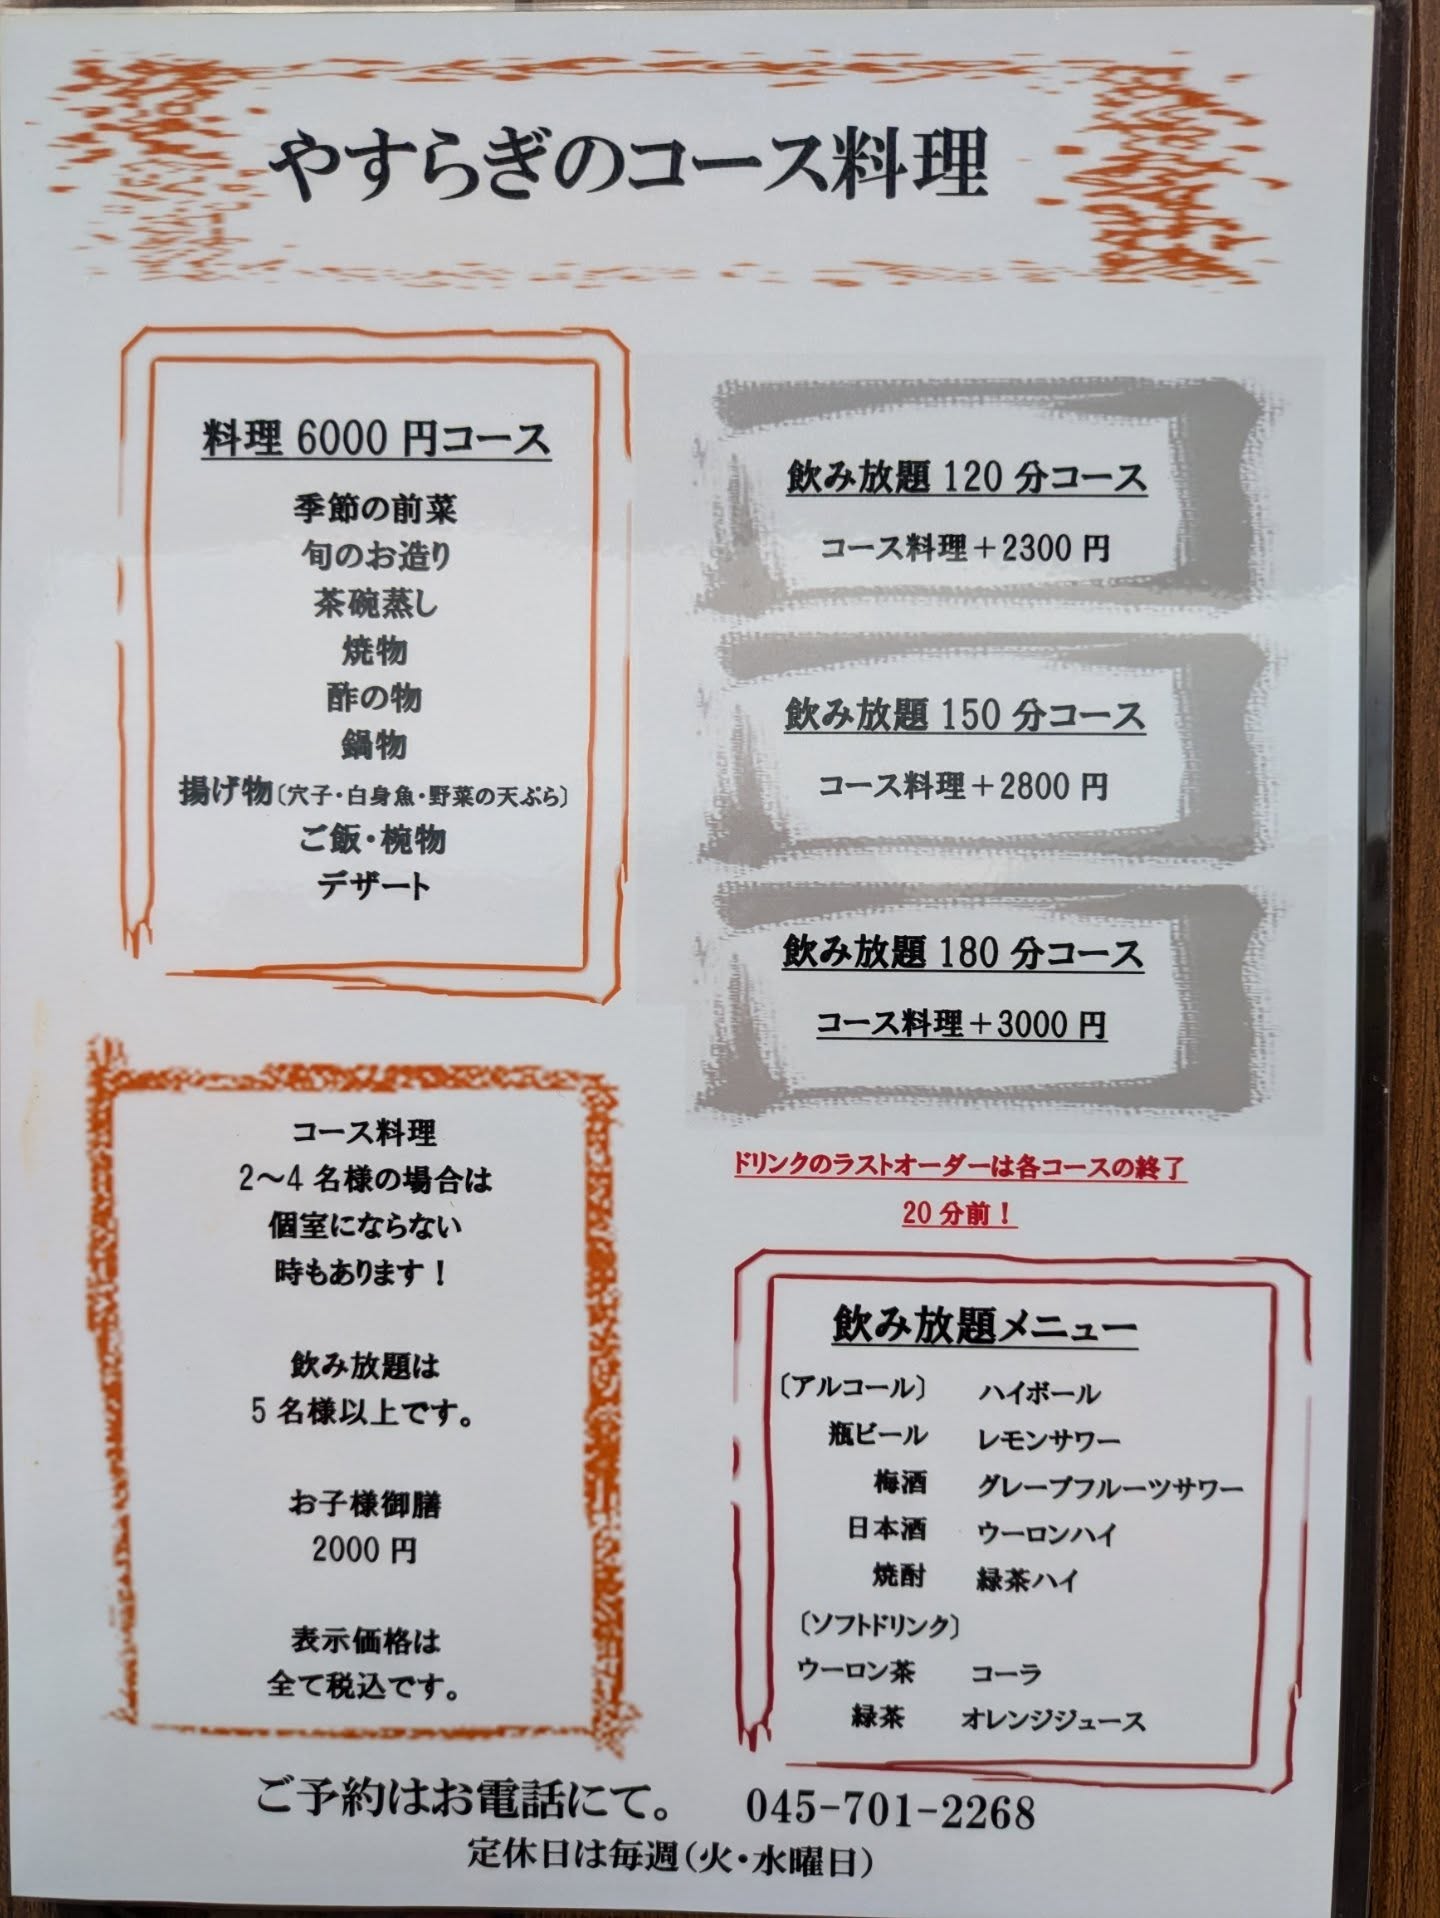 やすらぎのコース料理
料理 6000 円コース
季節の前菜
旬のお造り
茶碗蒸し
焼物
酢の物
鍋物
揚げ物〔穴子・白身魚・野菜の天ぷら〕
ご飯・椀物
デザート
飲み放題 120 分コース
コース料理＋2300 円
飲み放題 150 分コース
コース料理＋2800 円
飲み放題 180 分コース
コース料理＋3000 円
ドリンクのラストオーダーは各コースの終了
20 分前！
コース料理
2～4 名様の場合は
個室にならない
時もあります！
飲み放題は
5 名様以上です。
お子様御膳
2000 円
表示価格は
全て税込です。
飲み放題メニュー
〔アルコール〕 ハイボール
瓶ビール レモンサワー
梅酒 グレープフルーツサワー
日本酒 ウーロンハイ
焼酎 緑茶ハイ
〔ソフトドリンク〕
ウーロン茶 コーラ
緑茶 オレンジジュース
ご予約はお電話にて。 045-701-2268
定休日は毎週（火・水曜日）